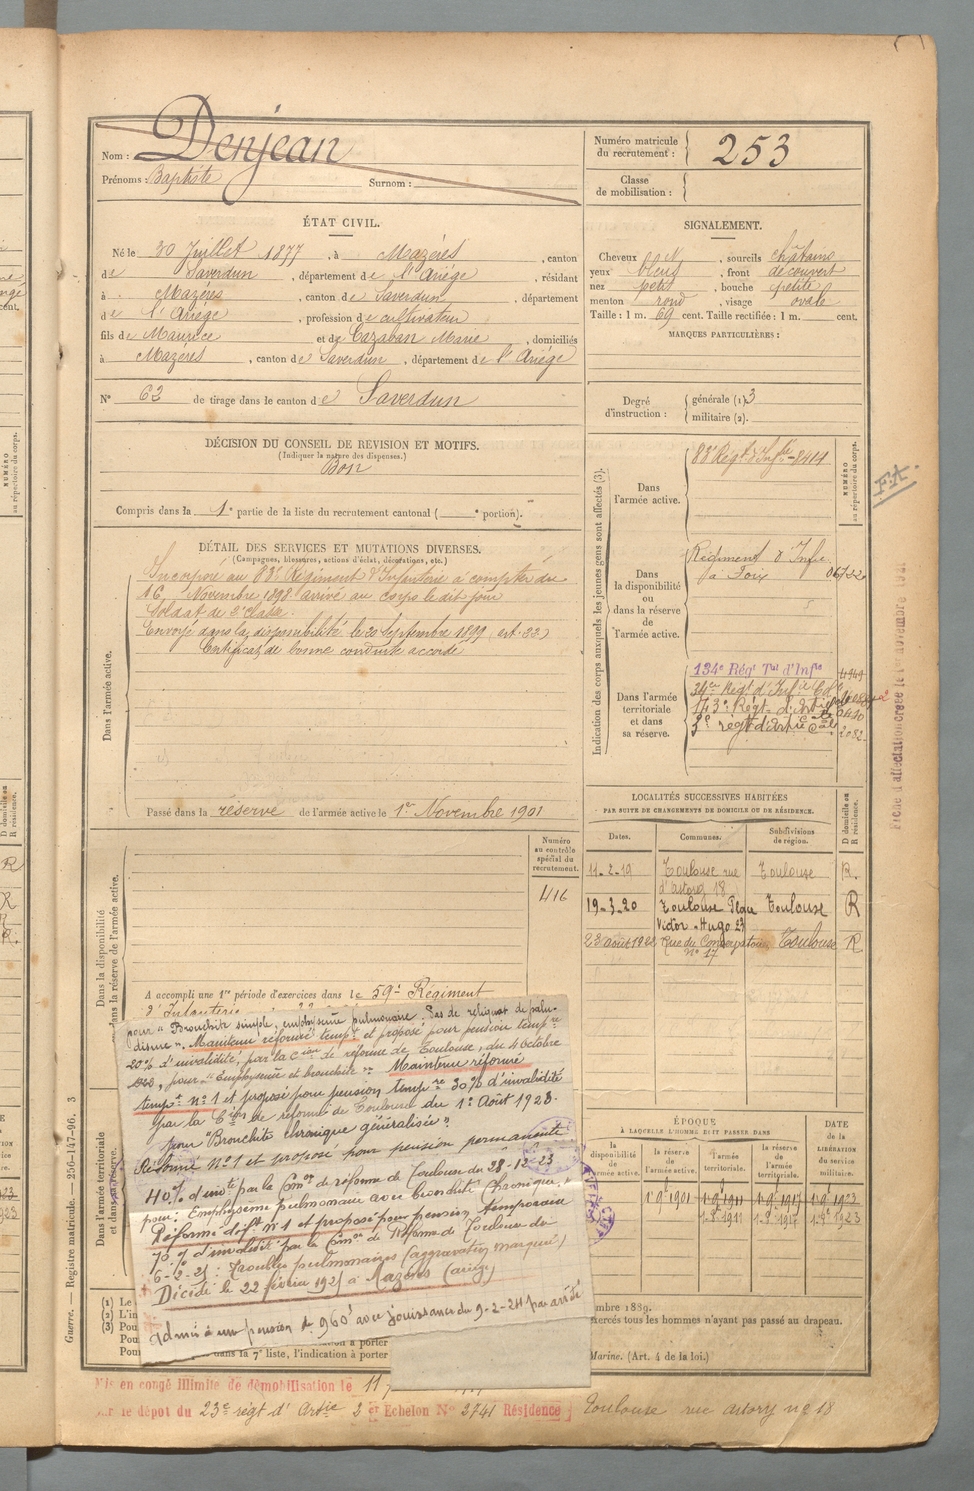 Nom : Denjean
Prénoms : Baptiste Surnom :
Numéro matricule du recrutement : 253
Classe de mobilisation :
ÉTAT CIVIL.
Né le 30 Juillet 1877, à Mazères, canton
de Saverdun, département de l'Ariège, résidant
à Mazères, canton de Saverdun, département
de l'Ariège, profession de cultivateur
fils de Maurice et de Cazaban Marie, domiciliés
à Mazères, canton de Saverdun, département de l'Ariège
N° 62 de tirage dans le canton de Saverdun
SIGNALEMENT.
Cheveux N, sourcils châtains
yeux bleus, front découvert
nez petit, bouche petite
menton rond, visage ovale
Taille : 1 m. 69 cent. Taille rectifiée : 1 m. cent.
MARQUES PARTICULIÈRES :
Degré d'instruction : générale (1) 3
militaire (2).
DÉCISION DU CONSEIL DE REVISION ET MOTIFS.
(Indiquer la nature des dispenses.)
Bon
Compris dans la 1e partie de la liste du recrutement cantonal ( e portion).
DÉTAIL DES SERVICES ET MUTATIONS DIVERSES.
(Campagnes, blessures, actions d'éclat, décorations, etc.)
Dans l'armée active.
Incorporé au 83e Régiment d'Infanterie à compter du
16 Novembre 1898 arrivé au corps le dit jour
Soldat de 2e classe.
Envoyé dans la disponibilité le 20 Septembre 1899 (art. 22)
Certificat de bonne conduite accordé
Passé dans la réserve de l'armée active le 1er Novembre 1901
Indication des corps auxquels les jeunes gens sont affectés (3).
NUMÉRO au répertoire du corps.
Dans l'armée active.
83e Régt d'Infie - 8411
Dans la disponibilité ou dans la réserve de l'armée active.
Régiment d'Infie
à Foix 06722
Dans l'armée territoriale et dans sa réserve.
134e Régt Tal d'Infie 4949
34e Régt d'Infie Cole
143e Régt d'Artie
3e régt d'Artie Cale 2082
F.A.
Fiche d'affectation créée le 1er novembre
LOCALITÉS SUCCESSIVES HABITÉES
PAR SUITE DE CHANGEMENTS DE DOMICILE OU DE RÉSIDENCE.
Dates. Communes. Subdivisions de région. D domicile ou R résidence.
11-2-19 Toulouse rue d'astorg 18 Toulouse R.
19-3-20 Toulouse Place Victor-Hugo 23 Toulouse R
23 août 1922 Rue du Conservatoire n° 17 Toulouse R
Numéro au contrôle spécial du recrutement.
416
Dans la disponibilité ou dans la réserve de l'armée active.
A accompli une 1re période d'exercices dans le 59e Régiment
d'Infanterie
pour "Bronchite simple, emphysème pulmonaire. Pas de reliquat de palu-
disme". Maintenu réformé tempre et proposé pour pension tempre
20% d'invalidité, par la Cion de réforme de Toulouse, du 4 octobre
pour "Emphysème et bronchite". Maintenu réformé
tempre n° 1 et proposé pour pension tempre 30% d'invalidité
par la Cion de réforme de Toulouse du 1er Août 1923.
pour "Bronchite chronique généralisée".
Réformé n° 1 et proposé pour pension permanente
40% d'invté par la Comon de réforme de Toulouse du 28-12-23
pour : Emphysème pulmonaire avec bronchite chronique.
Réformé déft n° 1 et proposé pour pension temporaire
70% d'invalidité par la Comon de Réforme de Toulouse du
6-2-25 : Troubles pulmonaires (aggravation marquée)
Décédé le 22 février 1925 à Mazères (ariège)
Admis à une pension de 960f avec jouissance du 9-2-24 par arrêté
Dans l'armée territoriale et dans sa réserve.
ÉPOQUE
À LAQUELLE L'HOMME DOIT PASSER DANS
la disponibilité de l'armée active. la réserve de l'armée active. l'armée territoriale. la réserve de l'armée territoriale.
DATE de la LIBÉRATION du service militaire.
1.9.1901 1.9.1911 1.9.1917 1.9.1923
1.9.1911 1.9.1917 1.9.1923
(1) Le
(2) L'in
(3) Pou
Pou
Pou
dans la 7e liste, l'indication à porter
embre 1889.
exercés tous les hommes n'ayant pas passé au drapeau.
Marine. (Art. 4 de la loi.)
Guerre. — Registre matricule. — 256-147-96. 3
Mis en congé illimité de démobilisation le 11
le dépôt du 23e régt d'Artie 2 Echelon N° 2741 Résidence Toulouse rue astorg n° 18